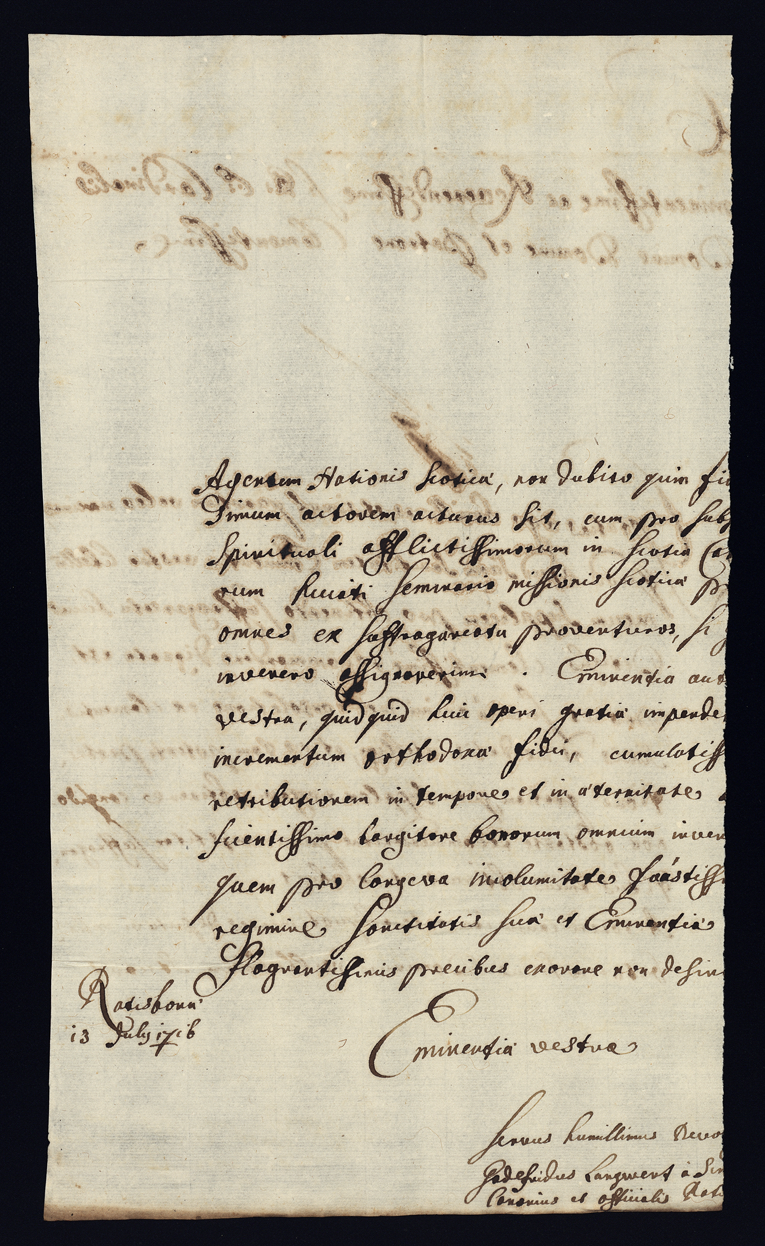 Agentem Nationis Scoticæ, non dubito quin fi
simum actorem acturus sit, cum pro subs
spirituali afflictissimorum in Scotia Ca
rum huiati Seminario missionis Scoticæ p
omnes ex suffraganeatu proventuros, si
invenero assignaverim. Eminentia aut
vestra, quidquid huic operi gratiæ impende
incrementum orthodoxæ fidei, cumulatiss
retributionem in tempore et in æternitate a
ficientissimo largitore bonorum omnium inven
quem pro longeva incolumitate faustiss
regimine Sanctitatis suæ et Eminentiæ
flagrantissimis precibus exorare non desin
Ratisbonæ
13 July 1716
Eminentiæ vestræ
servus humillimus Devo
Godefridus Langwert à Sim
Canonius et officialis Rati